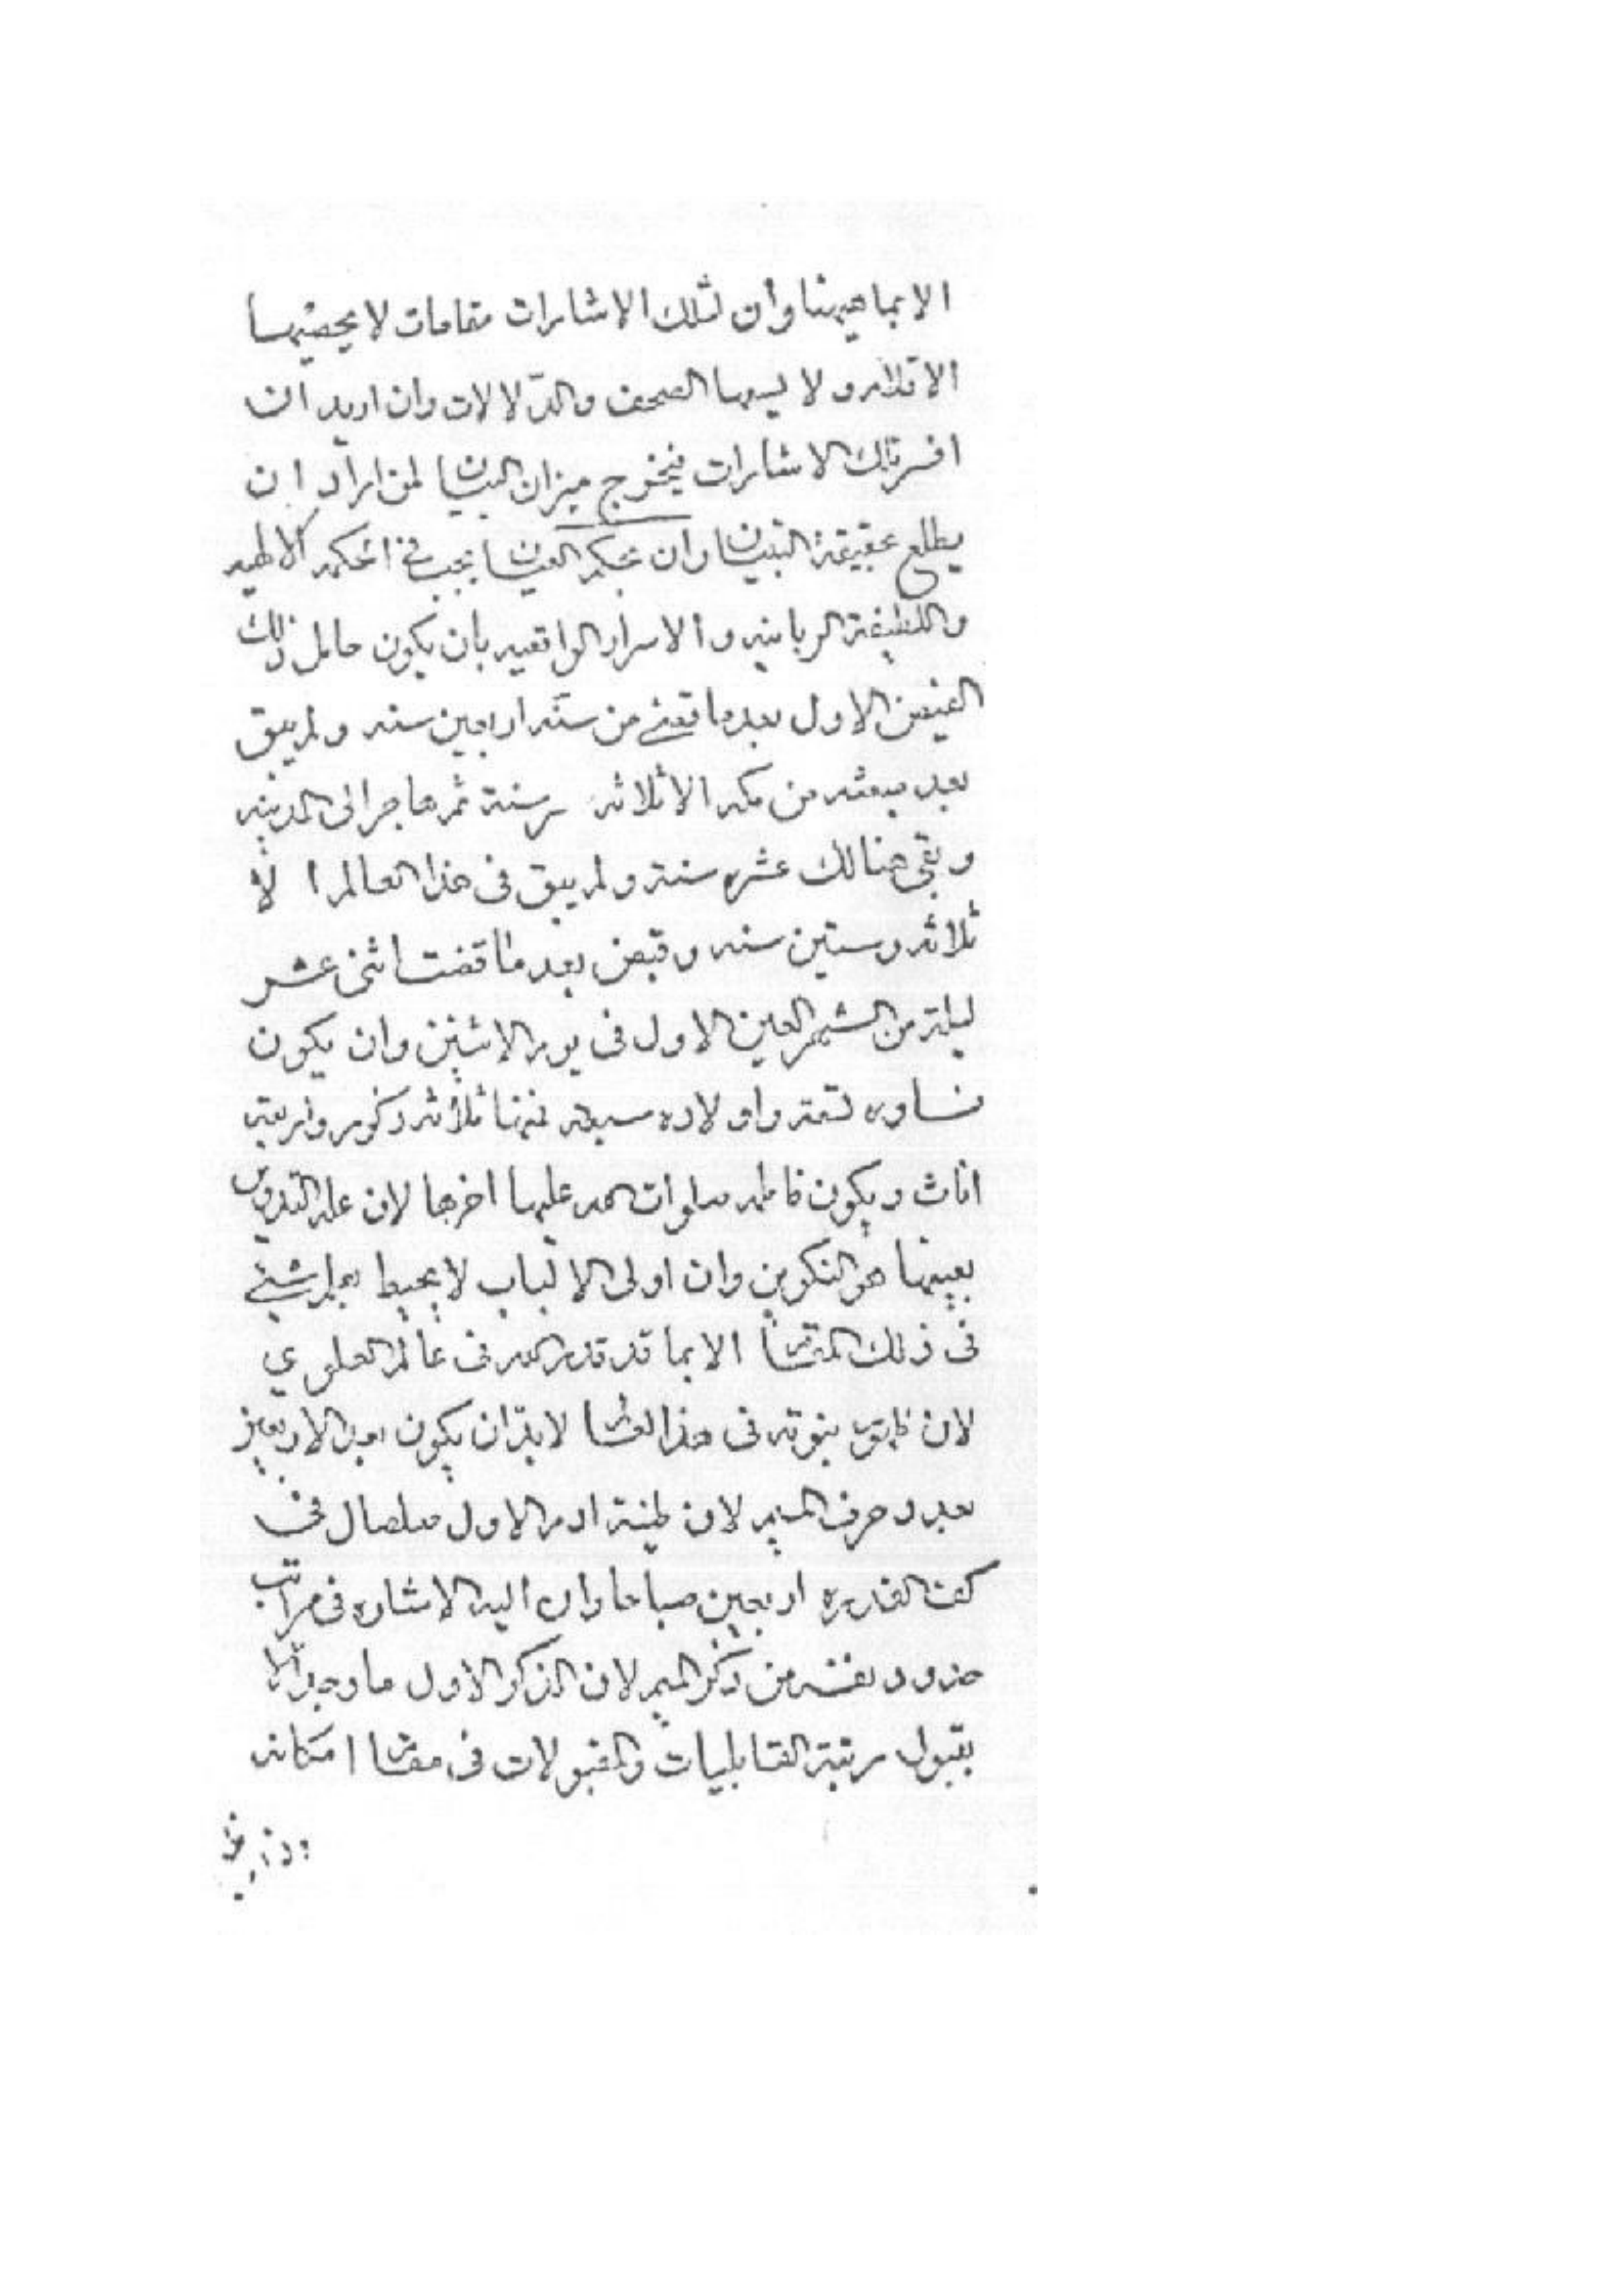 الا بما هيهنا وان لتلك الاشارات مقامات لا يحصيها
الاقلام ولا يسعها الصحف والدّلالات وان اريد ان
افسر تلك الاشارات فيخرج ميزان البيان لمن اراد ان
يطلع بحقيقة التبيان وان بحكم العيان يجب في الحكمه الالهيه
واللطيفة الربانيه والاسرار الواقعيه بان يكون حامل ذلك
الفيض الاول بعد ما قضى من سنّه اربعين سنه ولم يبق
بعد مبعثه من مكه الا ثلاثه سنة ثم هاجر الى المدينه
وبقي هنالك عشره سنة ولم يبق في هذا العالم الا
ثلاثه وستين سنه وقبض بعد ما قضت اثنى عشر
ليلة من الشهر الاول في يوم الاثنين وان يكون
نساوه تسعة واولاده سبعه منها ثلاثه ذكور واربعة
اناث ويكون فاطمه صلوات الله عليها اخرها لان علة التدوين
بعينها هو التكوين وان اولى الالباب لا يحيط بعلم شيئ
في ذلك المقام الا بما قد قدر الله في عالم العلوي
لان نبوته في هذا المقام لا بدّ ان يكون بعد الاربعين
بعدد حرف الميم لان طينة ادم الاول صلصال في
كف القدره اربعين صباحا وان اليه الاشاره في مراتب
حدود نفسه من ذكر الميم لان الذكر الاول ما وجد الا
بقبول مرتبة القابليات والمقبولات في مقام امكانه